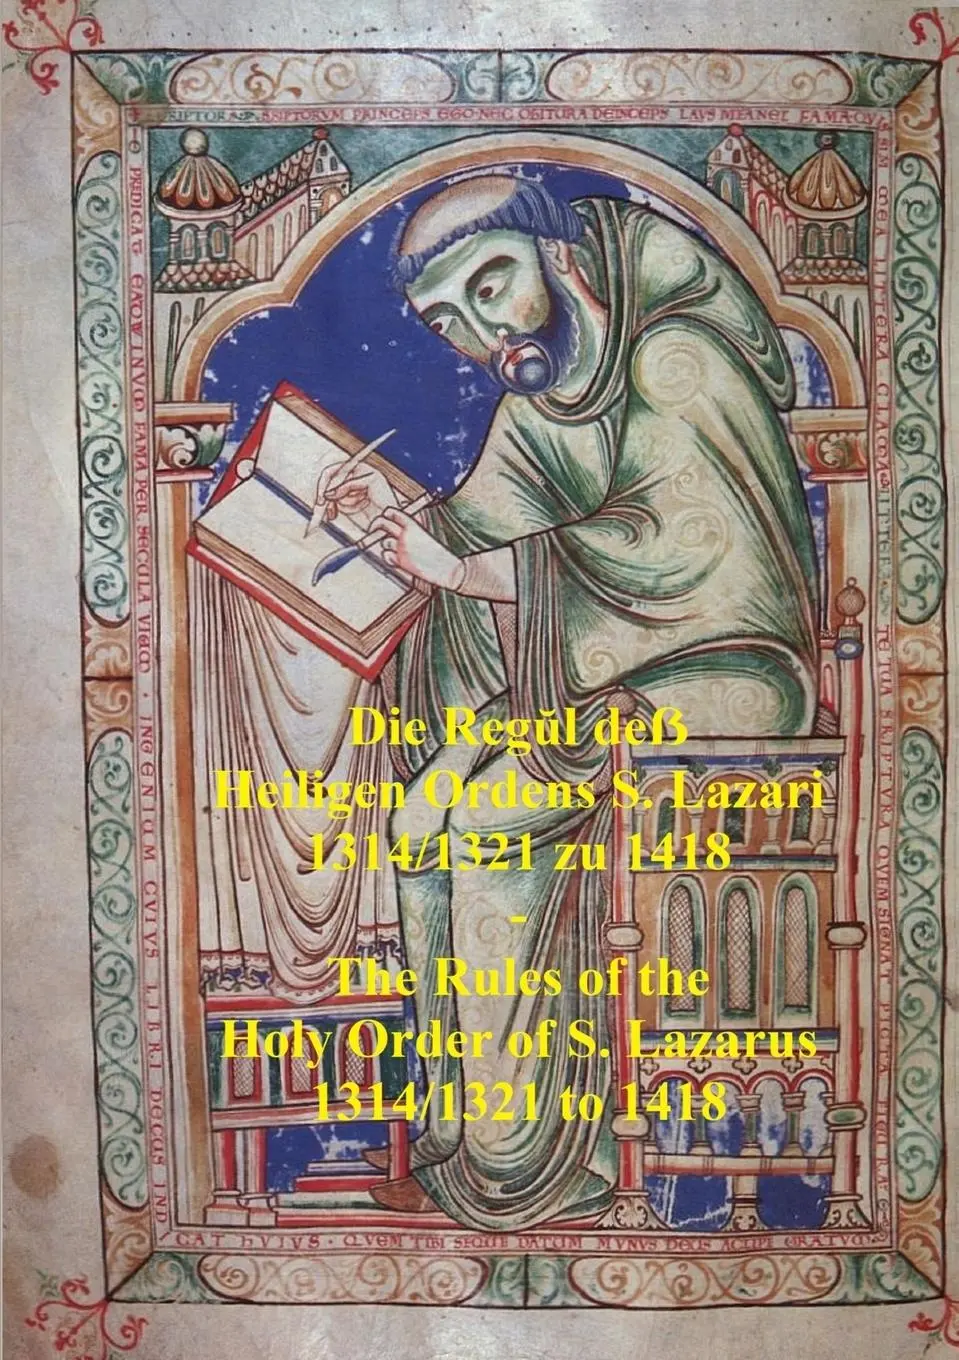 SCRIPTORVM PRINCEPS EGO NEC OBITVRA DEINCEPS LAVS MEA NEC FAMA QVIS
SIM MEA LITTERA CLAMA
TE TVA SCRIPTVRA QVEM SIGNAT PICTA FIGVRA
PREDICAT
FAMA PER SECVLA VIVVM · INGENIVM CVIVS LIBRI DECVS IND
ICAT HVIVS · QVEM TIBI SEQVE DATVM MVNVS DEUS ACCIPE GRATVM
Die Regŭl deß
Heiligen Ordens S. Lazari
1314/1321 zu 1418
-
The Rules of the
Holy Order of S. Lazarus
1314/1321 to 1418